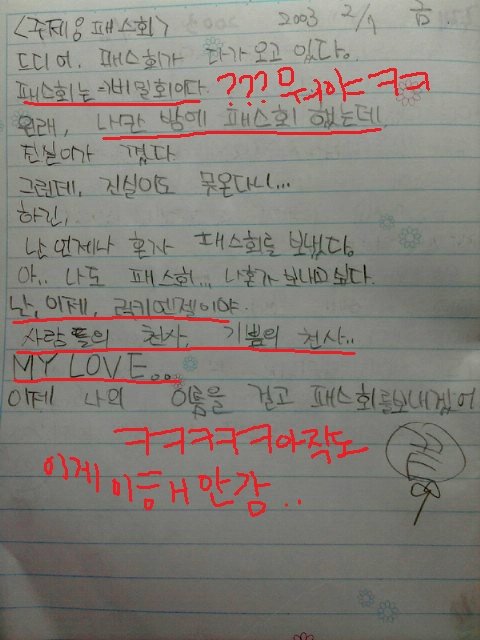 <주제:일 패스회> 2003 2/7 금
드디어. 패스회가 다가오고 있다.
패스회는 비밀회이다. ???ㅁ 뭐야ㅋㅋ
원래, 나만 밤에 패스회 했는데
진실이가 꼈다
그런데, 진실이도 못온다니...
하긴,
난 언제나 혼자 패스회를 보냈다.
아.. 나도 패스회... 나혼자 보내고 싶다.
난, 이제, 럭키엔젤이야.
사람들의 천사, 기쁨의 천사..
MY LOVE...
이제 나의 이름을 걸고 패스회를보내겠어
ㅋㅋㅋㅋㅋ아직도
이게 이해안감..
끝